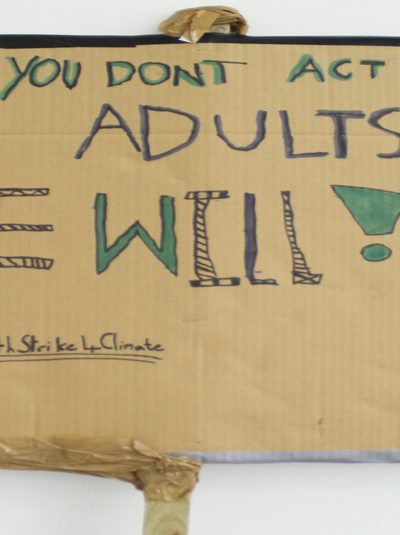 YOU DONT ACT
ADULTS
E WILL!
thStrike4Climate